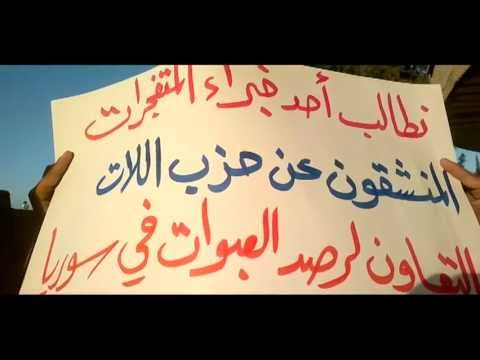 نطالب أحد خبراء المتفجرات
المنشقون عن حزب اللات
التعاون لرصد العبوات في سوريا